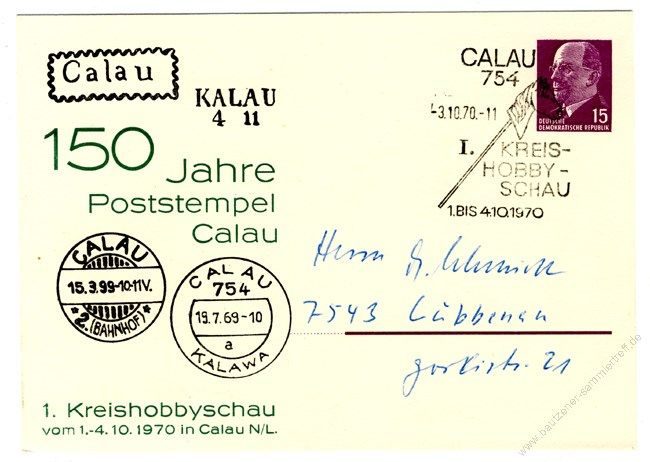 Calau
KALAU
4 11
150 Jahre
Poststempel
Calau
CALAU
15.3.99-10-11V.
* 2.(BAHNHOF) *
CALAU
754
19.7.69-10
a
KALAWA
1. Kreishobbyschau
vom 1.-4.10.1970 in Calau N/L.
CALAU
754
-3.10.70.-11
I. KREIS-
HOBBY-
SCHAU
1.BIS 4.10.1970
15
DEUTSCHE
DEMOKRATISCHE REPUBLIK
Herrn
7543 Lübbenau
Gorkistr. 21
www.bautzener-sammlertreff.de